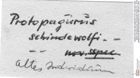 Protopagurus
schindewolfi -
nov. spec.
altes Individuum